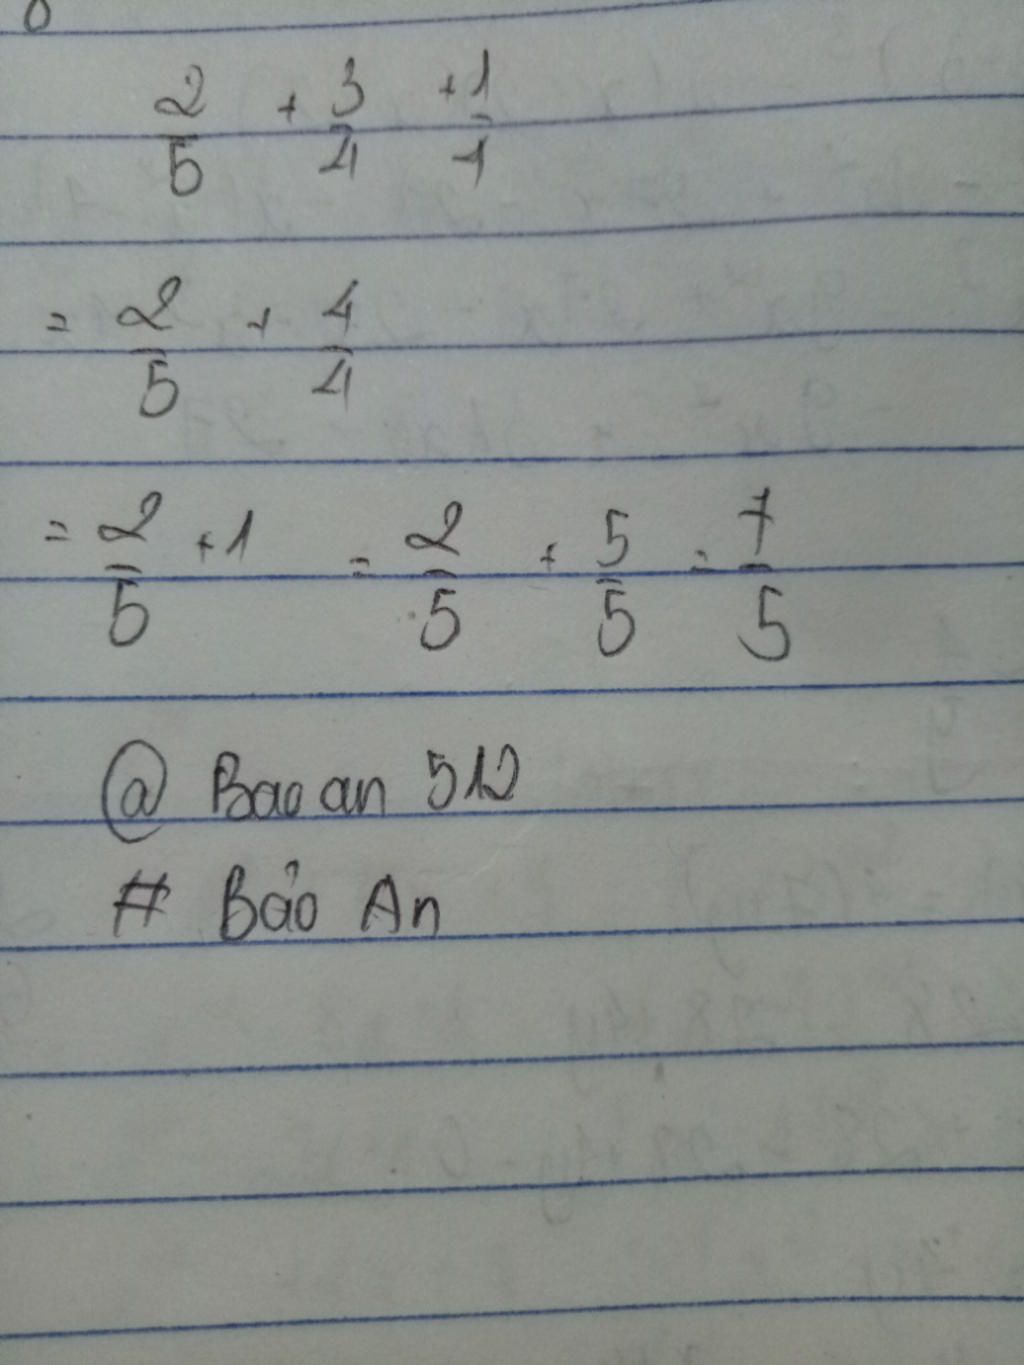 2/5 + 3/4 + 1/4
= 2/5 + 4/4
= 2/5 + 1 = 2/5 + 5/5 = 7/5
@ Bao an 512
# Bảo An